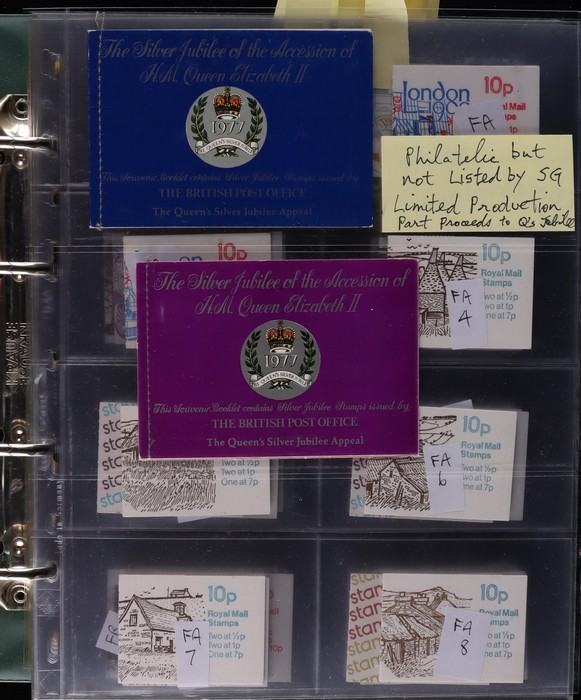 The Silver Jubilee of the Accession of
H.M. Queen Elizabeth II
1977
This Souvenir Booklet contains Silver Jubilee Stamps issued by
THE BRITISH POST OFFICE
The Queen's Silver Jubilee Appeal
London
10p
l Mail
FA
Philatelic but
not Listed by SG
Limited Production
Part Proceeds to Q's Jubilee
10p
10p
Royal Mail
Stamps
Two at ½p
Two at 1p
One at 7p
FA
4
The Silver Jubilee of the Accession of
H.M. Queen Elizabeth II
1977
This Souvenir Booklet contains Silver Jubilee Stamps issued by
THE BRITISH POST OFFICE
The Queen's Silver Jubilee Appeal
Two at ½p
Two at 1p
One at 7p
10p
Royal Mail
Stamps
Two at ½p
Two at 1p
One at 7p
FA
6
10p
Royal Mail
Stamps
Two at ½p
Two at 1p
One at 7p
FA
7
10p
Royal Mail
Stamps
Two at ½p
Two at 1p
One at 7p
FA
8